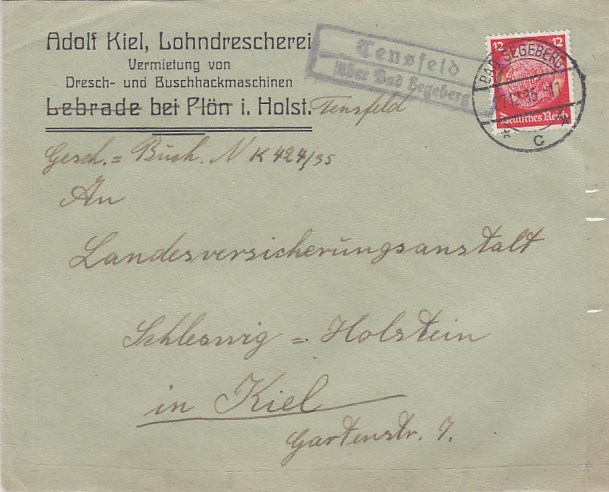 Adolf Kiel, Lohndrescherei
Vermietung von
Dresch- und Buschhackmaschinen
Lebrade bei Plön i. Holst. Tensfeld
Tensfeld
über Bad Segeberg
12 12
Deutsches Reich
BAD SEGEBERG
* C *
Gesch. = Buch. N K 424/35
An
Landesversicherungsanstalt
Schleswig = Holstein
in Kiel
Gartenstr. 7.